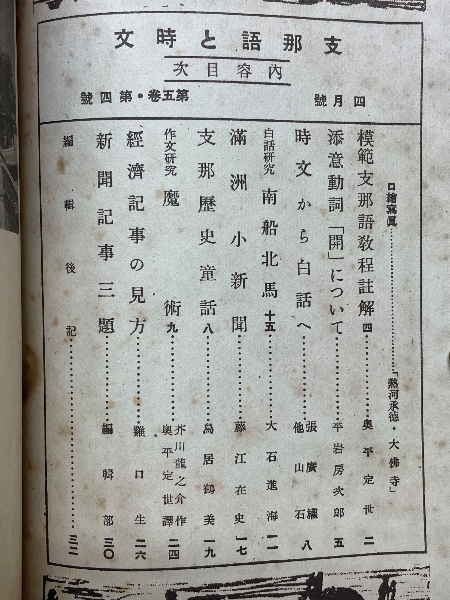 支那語と時文
內容目次
第五卷・第四號
四月號
口繪寫眞……「熱河承德・大佛寺」
模範支那語敎程註解 四……奧平定世 二
添意動詞「開」について……平岩房次郎 五
時文から白話へ……張廣 他山石 八
白話硏究 南船北馬 十五……大石進海 一一
滿洲小新聞……藤江在史 一七
支那歷史童話 八……鳥居鶴美 一九
作文硏究 魔術 九……芥川龍之介作 奧平定世譯 二四
經濟記事の見方……雞口生 二六
新聞記事三題……編輯部 三〇
編輯後記……三二